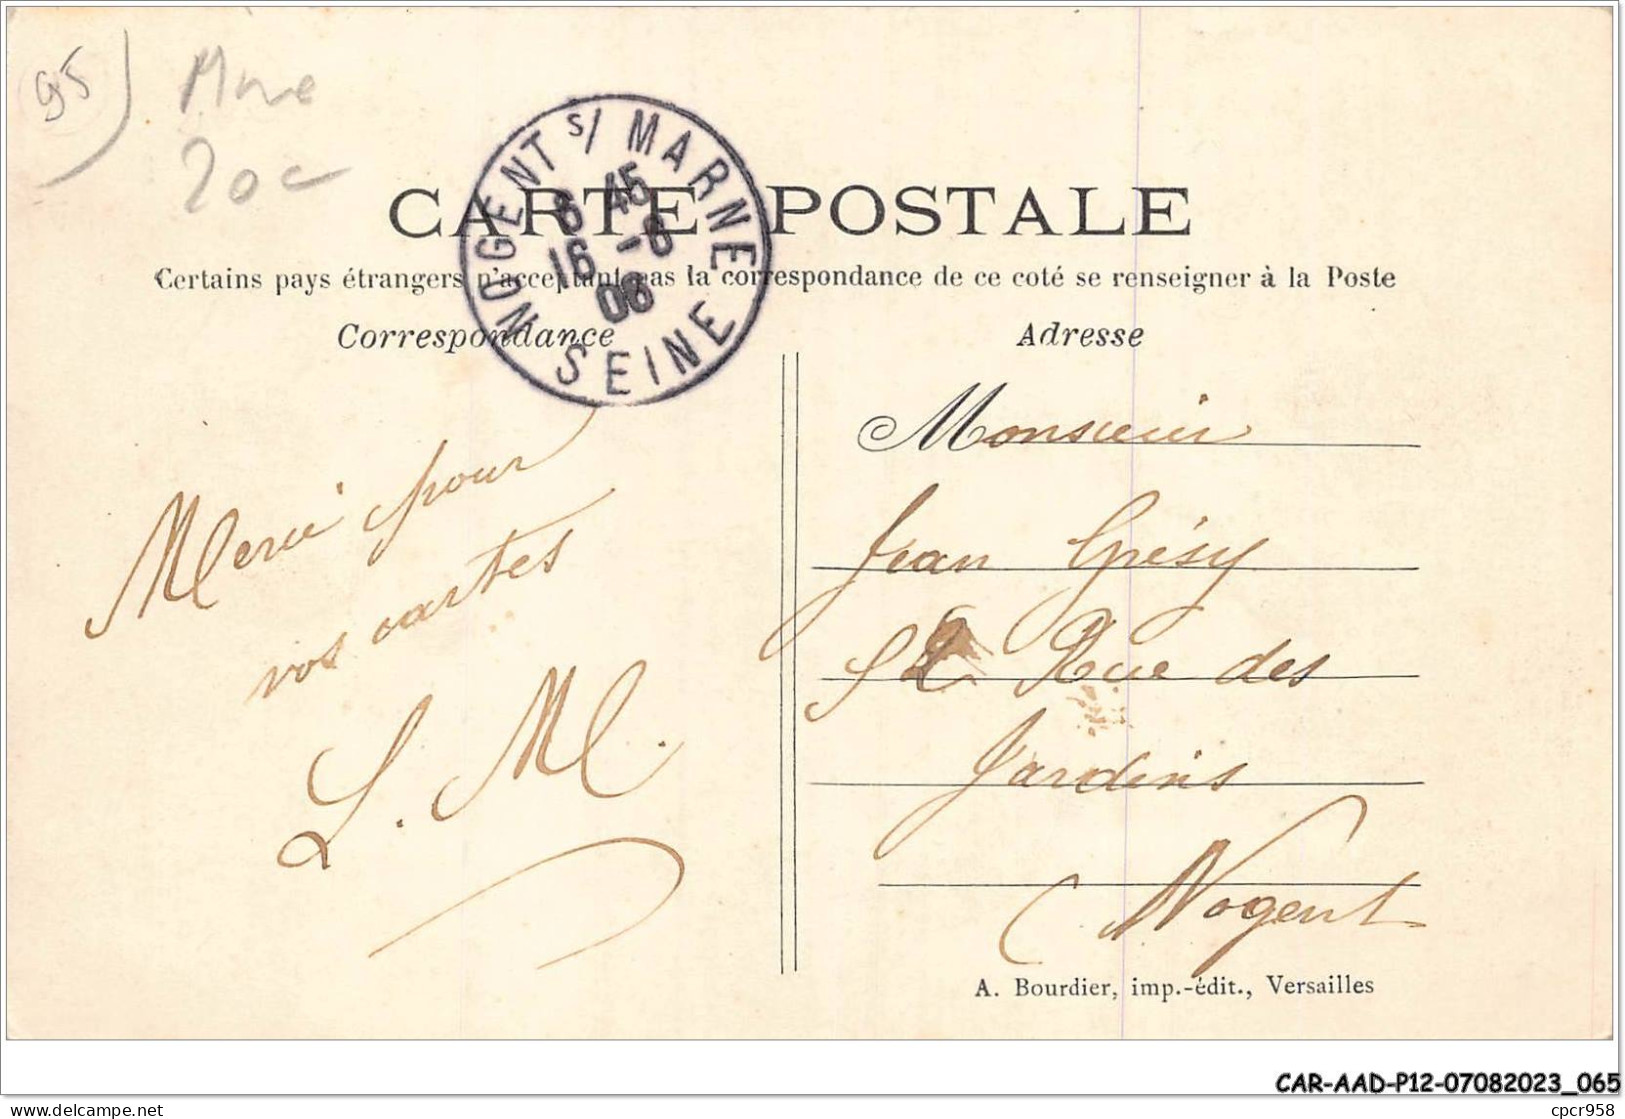 95
20c
NOGENT S/ MARNE
6 45
16 -6
06
SEINE
CARTE POSTALE
Certains pays étrangers n'acceptant pas la correspondance de ce coté se renseigner à la Poste
Correspondance
Adresse
Merci pour
vos cartes
L. M.
Monsieur
Jean Grésy
52 Rue des
Jardins
Nogent
A. Bourdier, imp.-édit., Versailles
CAR-AAD-P12-07082023_065
delcampe.net
cpcr958